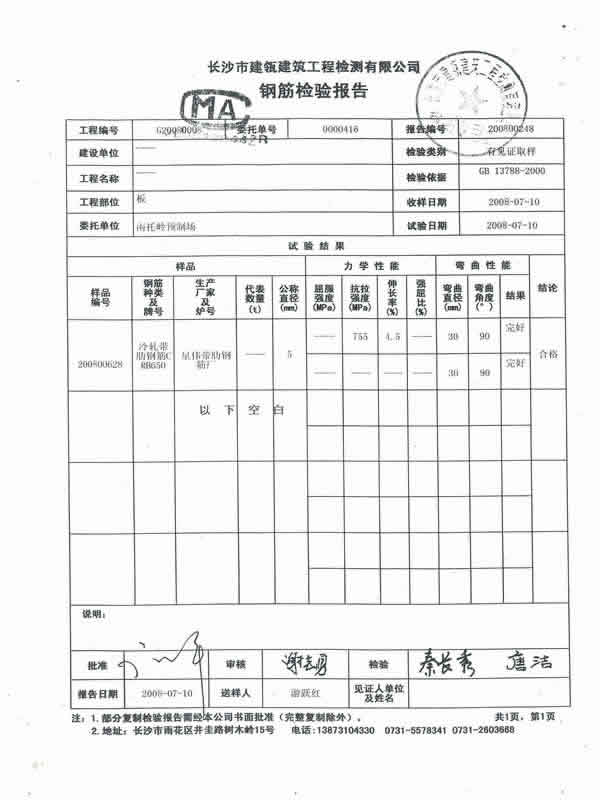 长沙市建瓴建筑工程检测有限公司
钢筋检验报告
MA
工程编号 G20080008 委托单号 0000416 报告编号 200800248
建设单位 —— 检验类别 有见证取样
工程名称 —— 检验依据 GB 13788-2000
工程部位 板 收样日期 2008-07-10
委托单位 雨托岭预制场 试验日期 2008-07-10
试验结果
样品 力学性能 弯曲性能 结论
样品编号 钢筋种类及牌号 生产厂家及炉号 代表数量(t) 公称直径(mm) 屈服强度(MPa) 抗拉强度(MPa) 伸长率(%) 强屈比(%) 弯曲直径(mm) 弯曲角度(°) 结果
200800628 冷轧带肋钢筋CRB650 星伟带肋钢筋厂 —— 5 —— 755 4.5 —— 30 90 完好 合格
—— —— —— —— 30 90 完好
以下空白
说明:
批准 审核 检验 秦长秀 唐洁
报告日期 2008-07-10 送样人 游跃红 见证人单位及姓名
注: 1.部分复制检验报告需经本公司书面批准（完整复制除外）. 共1页, 第1页
2.地址: 长沙市雨花区井圭路树木岭15号 电话:13873104330 0731-5578341 0731-2603668